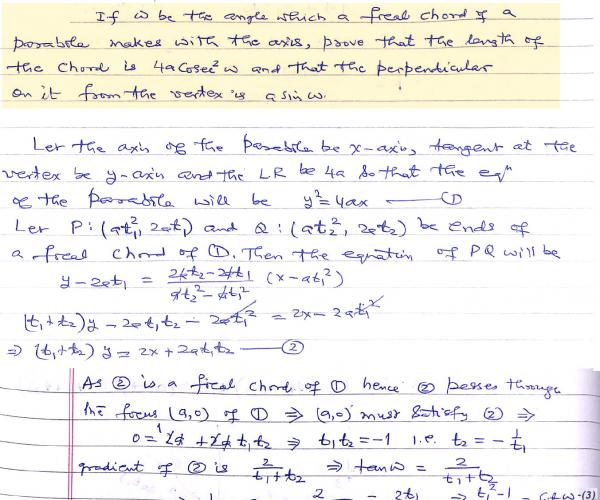 If ω be the angle which a focal chord of a
parabola makes with the axis, prove that the length of
the chord is 4a cosec² ω and that the perpendicular
on it from the vertex is a sin ω.
Let the axis of the parabola be x-axis, tangent at the
vertex be y-axis and the LR be 4a so that the eqn
of the parabola will be y² = 4ax —— ①
Let P: (at₁², 2at₁) and Q: (at₂², 2at₂) be ends of
a focal chord of ①. Then the equation of PQ will be
y - 2at₁ = (2at₂ - 2at₁)/(at₂² - at₁²) (x - at₁²)
(t₁+t₂)y - 2at₁t₂ - 2at₁² = 2x - 2at₁²
⇒ (t₁+t₂) y = 2x + 2at₁t₂ —— ②
As ② is a focal chord of ① hence ② passes through
the focus (a,0) of ① ⇒ (a,0) must satisfy ② ⇒
0 = 2a + 2a t₁t₂ ⇒ t₁t₂ = -1 i.e. t₂ = -1/t₁
gradient of ② is 2/(t₁+t₂) ⇒ tan ω = 2/(t₁+t₂)